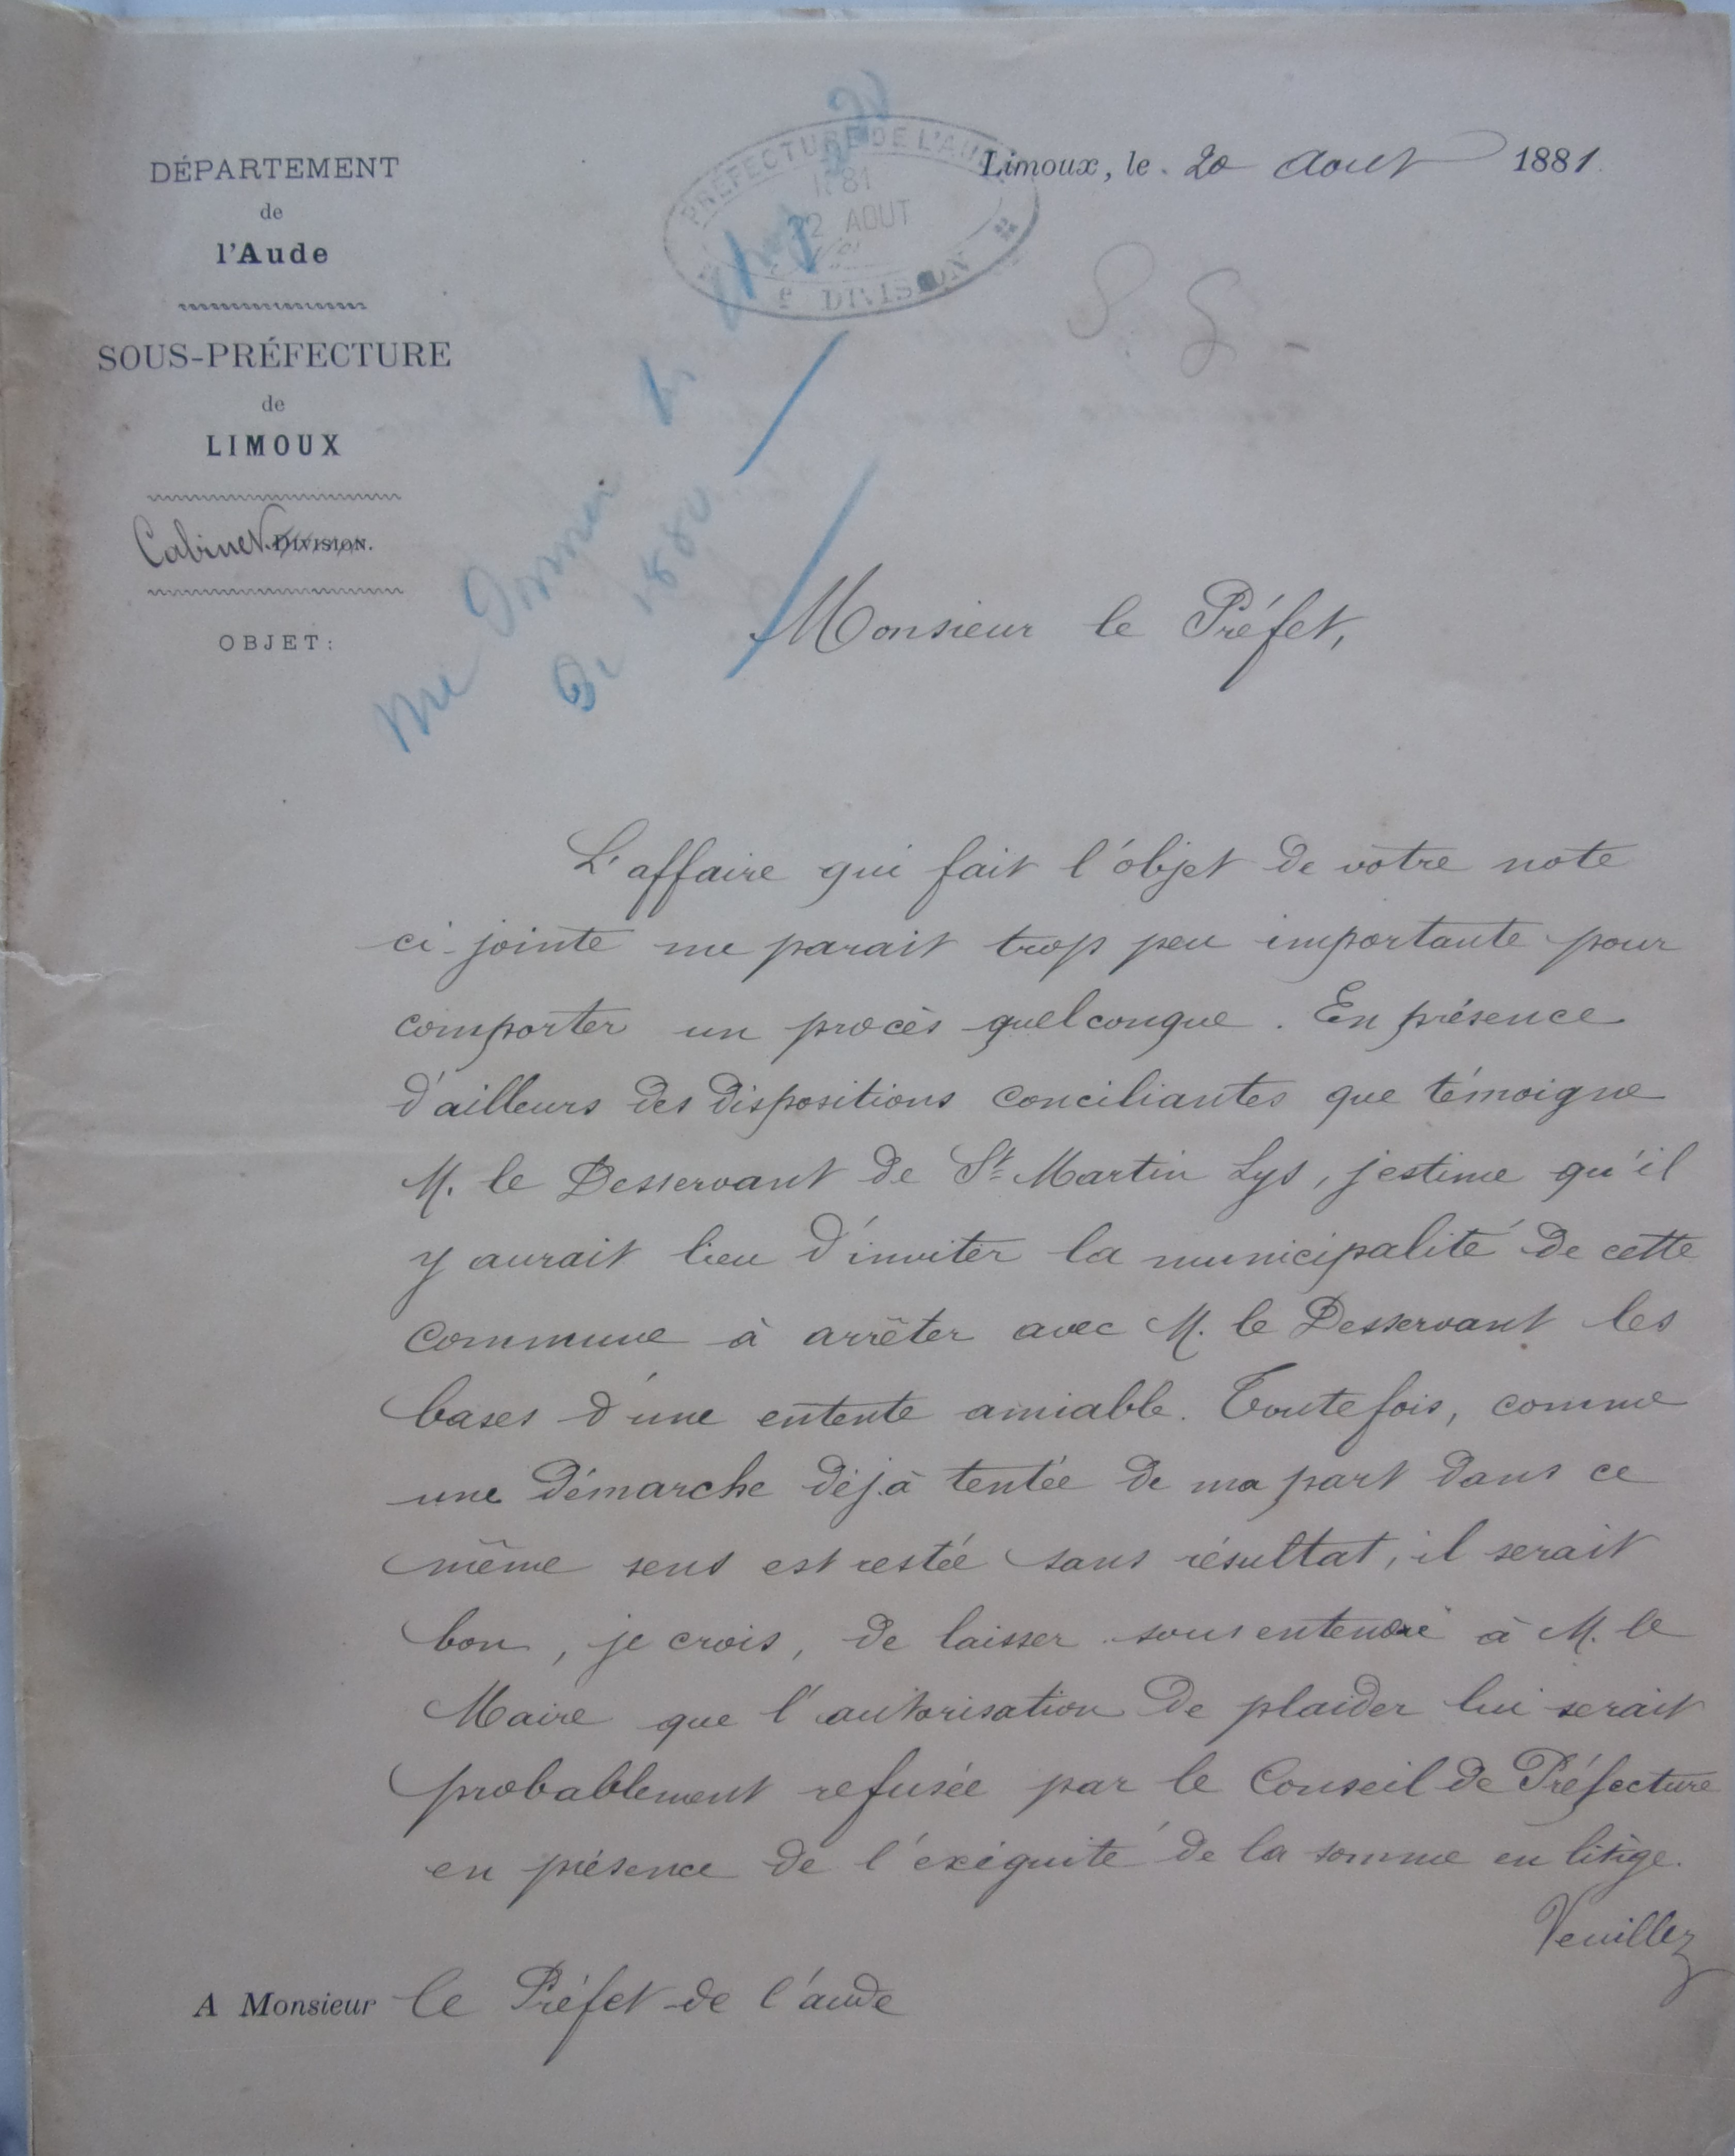 DÉPARTEMENT
de
l'Aude
SOUS-PRÉFECTURE
de
LIMOUX
Cabinet. DIVISION.
OBJET:
PRÉFECTURE DE L'AUDE
1881
22 AOUT
e DIVISION
Limoux, le 20 Aout 1881.
S. G. -
me donner le
De 1880
Monsieur le Préfet,
L'affaire qui fait l'objet de votre note
ci-jointe me parait trop peu importante pour
comporter un procès quelconque. En présence
d'ailleurs des dispositions conciliantes que témoigne
M. le Desservant de St Martin Lys, j'estime qu'il
y aurait lieu d'inviter la municipalité de cette
commune à arrêter avec M. le Desservant les
bases d'une entente amiable. Toutefois, comme
une démarche déjà tentée de ma part dans ce
même sens est restée sans résultat, il serait
bon, je crois, de laisser sous entendre à M. le
Maire que l'autorisation de plaider lui serait
probablement refusée par le Conseil de Préfecture
en présence de l'exiguité de la somme en litige.
Veuillez
A Monsieur le Préfet de l'aude